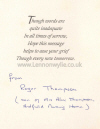 Though words are
quite inadequate
In all times of sorrow,
Hope this message
helps to ease your grief
Though every new tomorrow.
www.lennonwylie.co.uk
From
Roger Thompson
( son of the Rev Thompson,